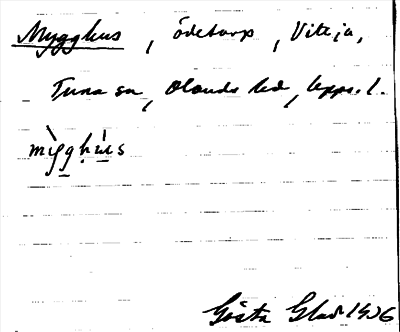 Mygghus, ödetorp, Viteja,
Tuna sn, Olands hd, Upps. l.
mỳgghùs
Gösta Glad 1906